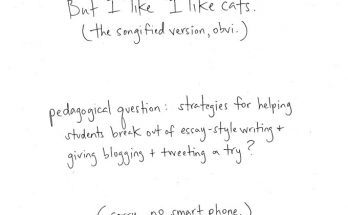 But I like I like cats.
(the songified version, obvi.)
pedagogical question: strategies for helping
students break out of essay-style writing +
giving blogging + tweeting a try?
(sorry, no smart phone.)